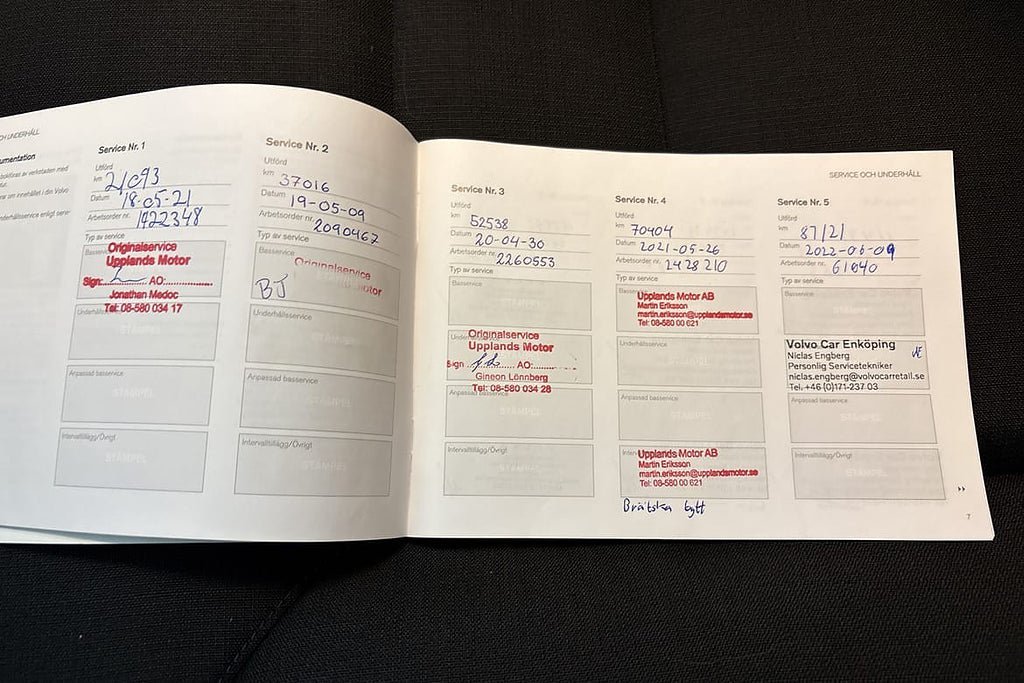 CH UNDERHÅLL
umentation
bokföras av verkstaden med
ra om innehållet i din Volvo
nderhållsservice enligt serv-
Service Nr. 1
Utförd
km 21093
Datum 18-05-21
Arbetsorder nr. 1922348
Typ av service
Basservice
Originalservice
Upplands Motor
Sign. AO:
Jonathan Medoc
Tel: 08-580 034 17
Underhållsservice
STÄMPEL
Anpassad basservice
STÄMPEL
Intervalltillägg/Övrigt
STÄMPEL
Service Nr. 2
Utförd
km 37016
Datum 19-05-09
Arbetsorder nr. 2090467
Typ av service
Basservice
Originalservice
Motor
BJ
Underhållsservice
STÄMPEL
Anpassad basservice
STÄMPEL
Intervalltillägg/Övrigt
STÄMPEL
SERVICE OCH UNDERHÅLL
Service Nr. 3
Utförd
km 52538
Datum 20-04-30
Arbetsorder nr. 2260553
Typ av service
Basservice
STÄMPEL
Originalservice
Upplands Motor
Sign. AO:
Gineon Lönnberg
Tel: 08-580 034 28
Anpassad basservice
STÄMPEL
Intervalltillägg/Övrigt
STÄMPEL
Service Nr. 4
Utförd
km 70404
Datum 2021-05-26
Arbetsorder nr. 2428210
Typ av service
Upplands Motor AB
Martin Eriksson
martin.eriksson@upplandsmotor.se
Tel: 08-580 00 621
Underhållsservice
STÄMPEL
Anpassad basservice
STÄMPEL
Upplands Motor AB
Martin Eriksson
martin.eriksson@upplandsmotor.se
Tel: 08-580 00 621
bytt
Service Nr. 5
Utförd
km 87121
Datum 2022-06-09
Arbetsorder nr. 61040
Typ av service
Basservice
STÄMPEL
Volvo Car Enköping
Niclas Engberg
Personlig Servicetekniker
niclas.engberg@volvocarretail.se
Tel. +46 (0)171-237 03
Anpassad basservice
STÄMPEL
Intervalltillägg/Övrigt
STÄMPEL
7